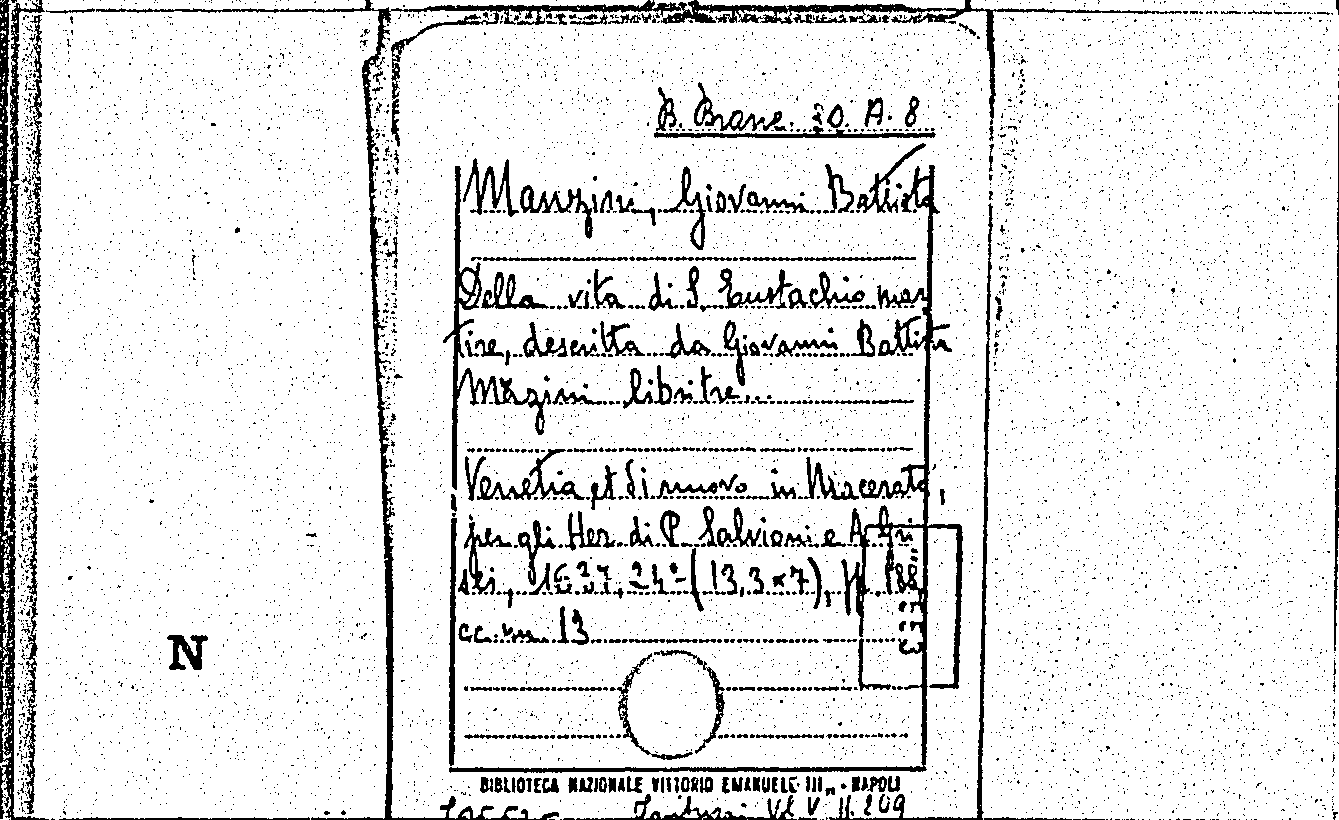 B. Branc. 20. A. 8
Manzini, Giovanni Battista
Della vita di S. Eustachio mar
tire, descritta da Giovanni Battista
Mazini libri tre...
Venetia et di nuovo in Macerata,
per gli Her. di P. Salvioni e A. Gri
sei, 1637, 24°(13,3×7), pp. 188
cc. nn. 13
N
BIBLIOTECA NAZIONALE VITTORIO EMANUELE III„ - NAPOLI
Vol. V. 209